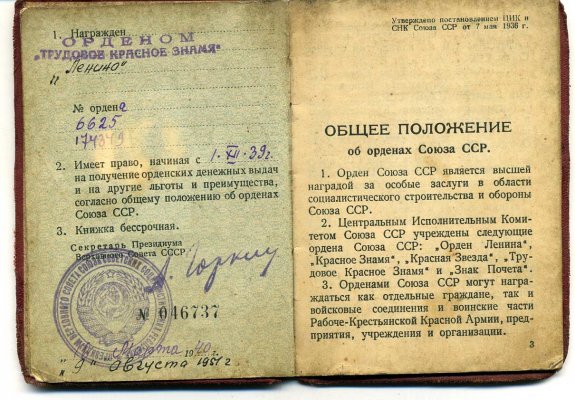 1. Награжден
ОРДЕНОМ
„ТРУДОВОЕ КРАСНОЕ ЗНАМЯ"
и „Ленина"
№ ордена
6625
174349
2. Имеет право, начиная с 1·XII·39г.
на получение орденских денежных выдач
и на другие льготы и преимущества,
согласно общему положению об орденах
Союза ССР.
3. Книжка бессрочная.
Секретарь Президиума
Верховного Совета СССР
А. Горкин
№ 046737
Марта 1940 г.
„9" Августа 1951 г
Утверждено постановлением ЦИК и
СНК Союза ССР от 7 мая 1936 г.
ОБЩЕЕ ПОЛОЖЕНИЕ
об орденах Союза ССР.
1. Орден Союза ССР является высшей
наградой за особые заслуги в области
социалистического строительства и обороны
Союза ССР.
2. Центральным Исполнительным Коми-
тетом Союза ССР учреждены следующие
ордена Союза ССР: „Орден Ленина",
„Красное Знамя", „Красная Звезда", „Тру-
довое Красное Знамя" и „Знак Почета".
3. Орденами Союза ССР могут на-
граждаться как отдельные граждане, так и
войсковые соединения и воинские части
Рабоче-Крестьянской Красной Армии, пред-
приятия, учреждения и организации.
3